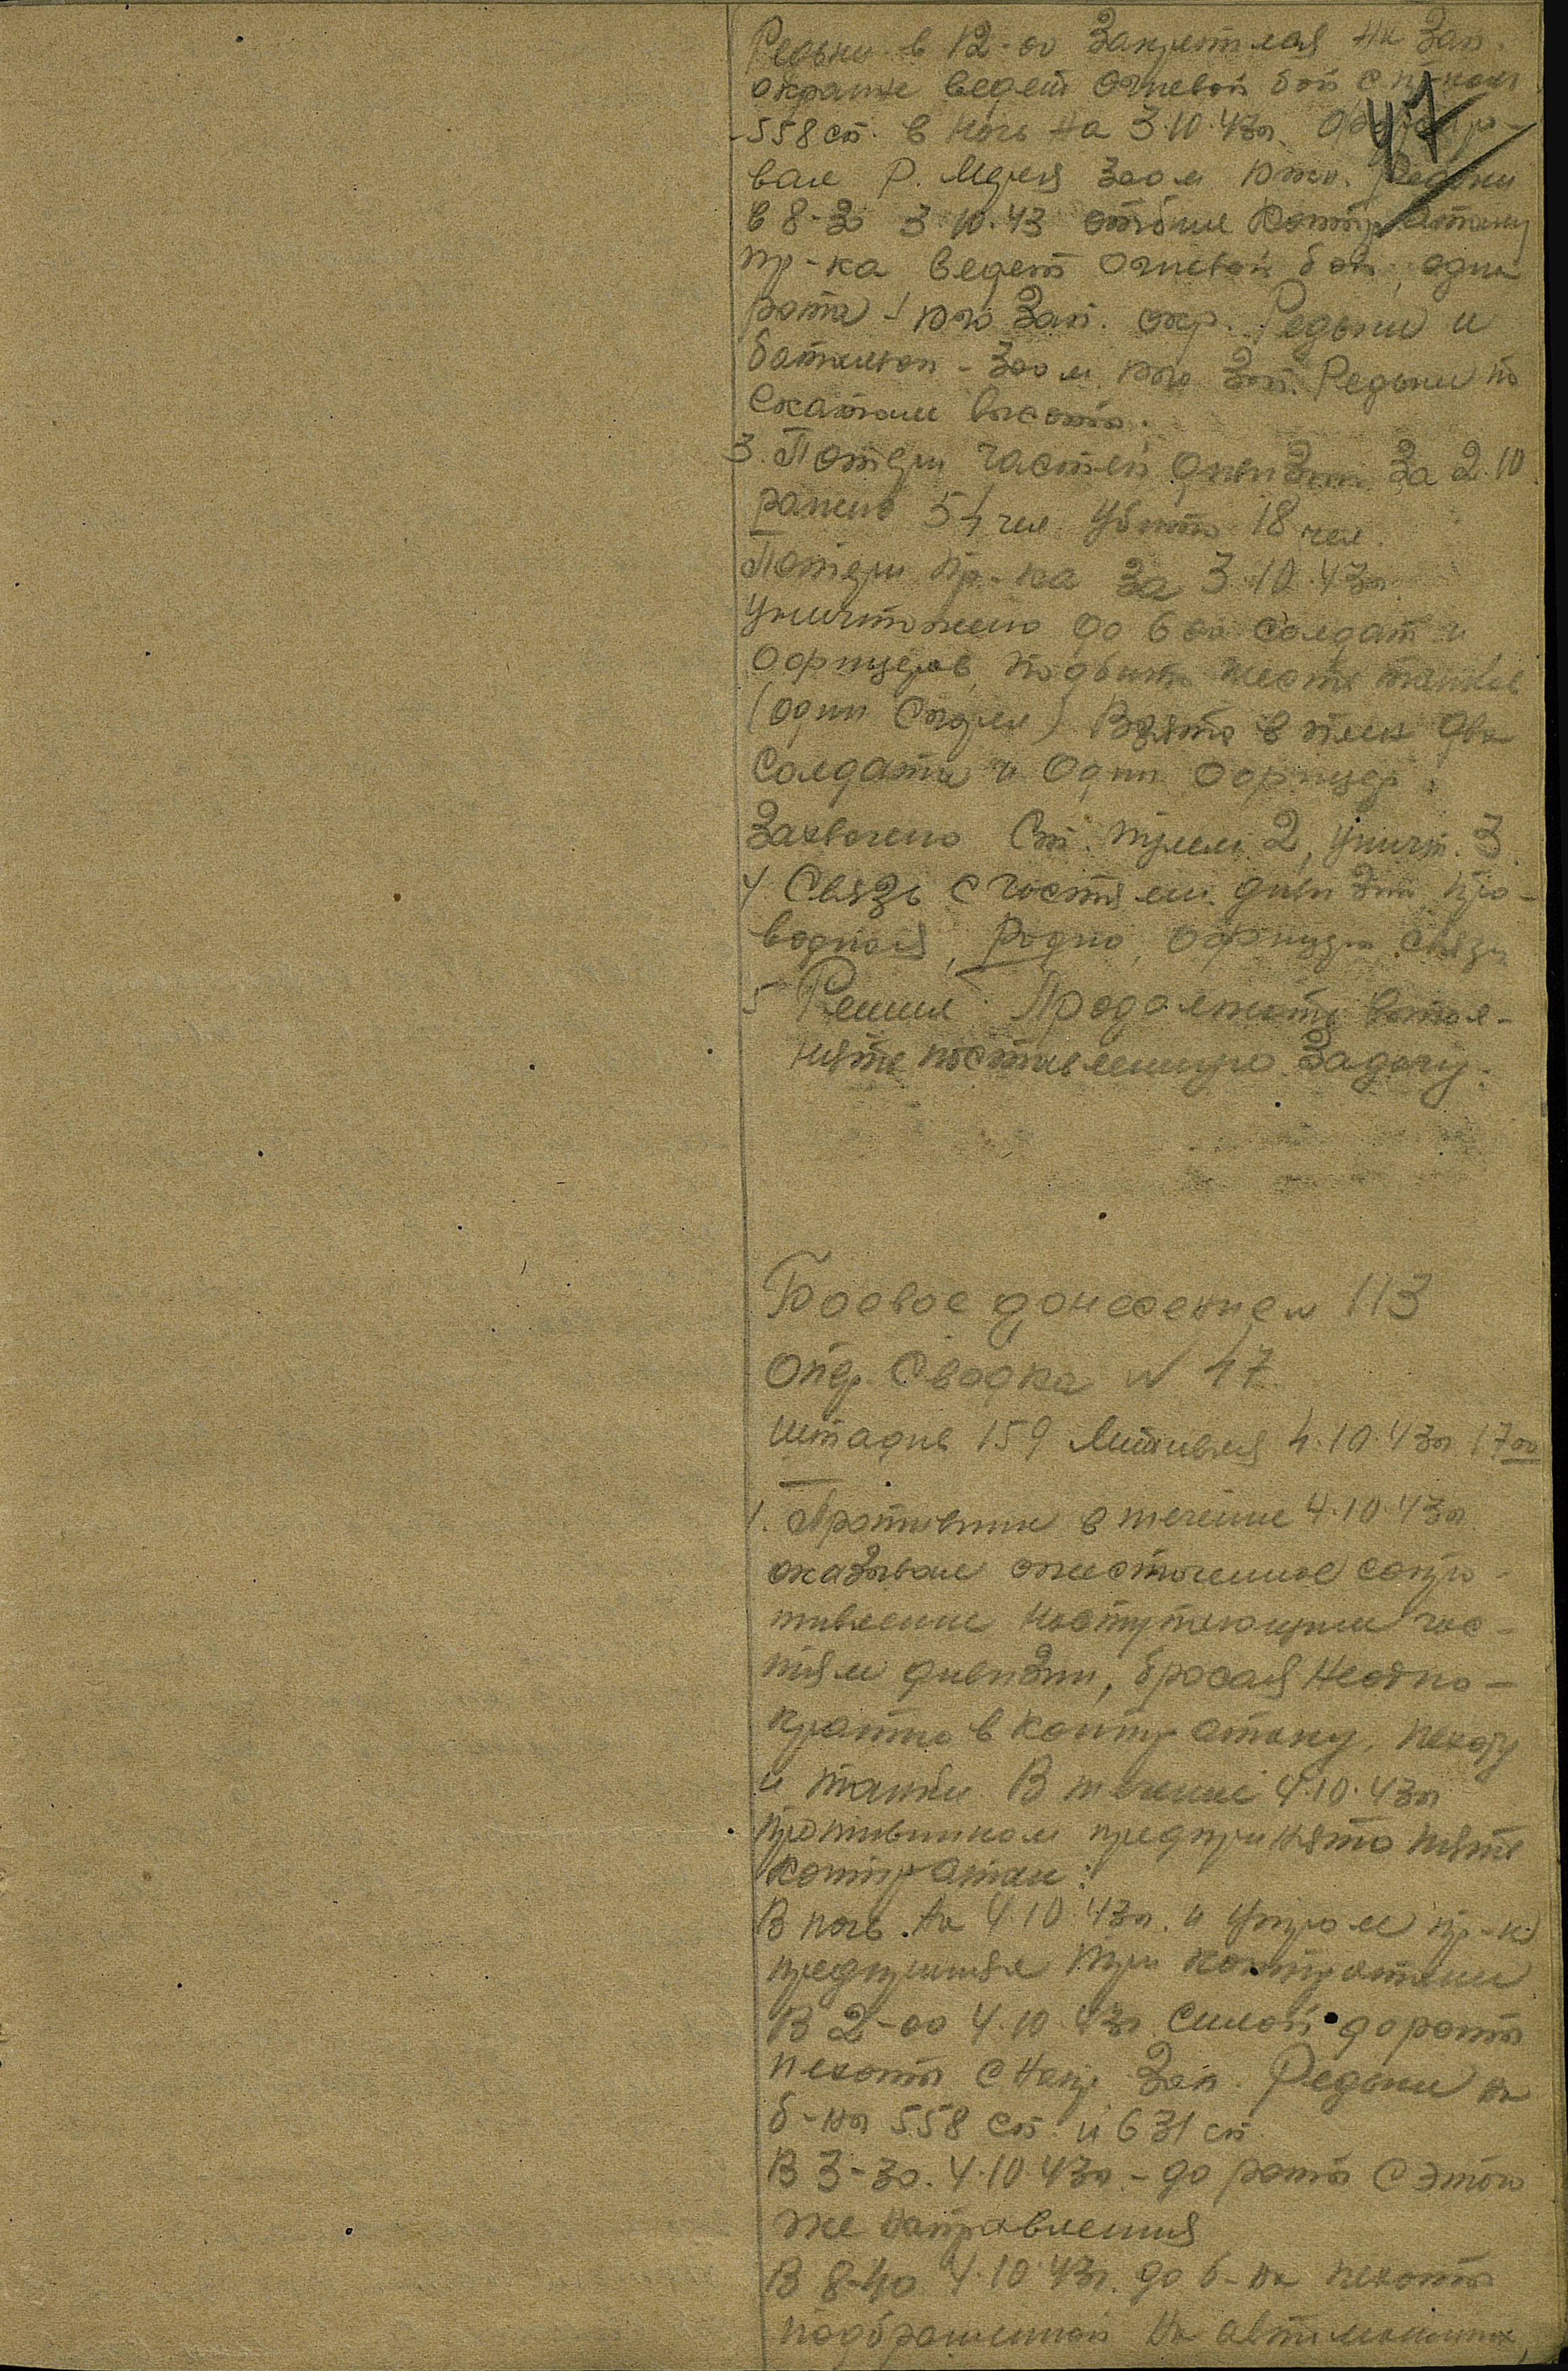 Редьки в 12-00 закрепился на зап.
окраине ведет огневой бой с пр-ком
47
558 сп. в ночь на 3.10.43г.
вал р. Мерея 300 м южн. Редьки
в 8-30 3.10.43 отбил контратаку
пр-ка ведет огневой бой, одна
рота - юго зап. окр. Редьки и
батальон - 300 м юго зап. Редьки по
скатам высоты.
3. Потери частей дивизии за 2.10
ранено 54 чел. убито 18 чел.
Потери пр-ка за 3.10.43г.
уничтожено до 600 солдат и
офицеров, подбито шесть танков
(один сожжен) Взято в плен два
солдата и один офицер.
Захвачено ст. пулем. 2, уничт. 3.
4 Связь с частями дивизии про-
водная, радио, офицеры связи
5 Решил: Продолжать выпол-
нять поставленную задачу.
Боевое донесение N 113
Опер. Сводка N 47
Штадив 159 4.10.43г 17 00
1. Противник в течение 4.10.43г
оказывал ожесточенное сопро-
тивление наступающим час-
тям дивизии, бросая неодно-
кратно в контратаку, пехоту
и танки. В течение 4.10.43г
противником предпринято пять
контратак:
В ночь на 4.10.43г. и утром пр-к
предпринял три контратаки
В 2-00 4.10.43г. силой до роты
пехоты с напр. зап. Редьки на
б-ны 558 сп. и 631 сп.
В 3-30. 4.10.43г. - до роты с этого
же направления
В 8-40 4.10.43г. до б-на пехоты
подброшенной на автомашинах,